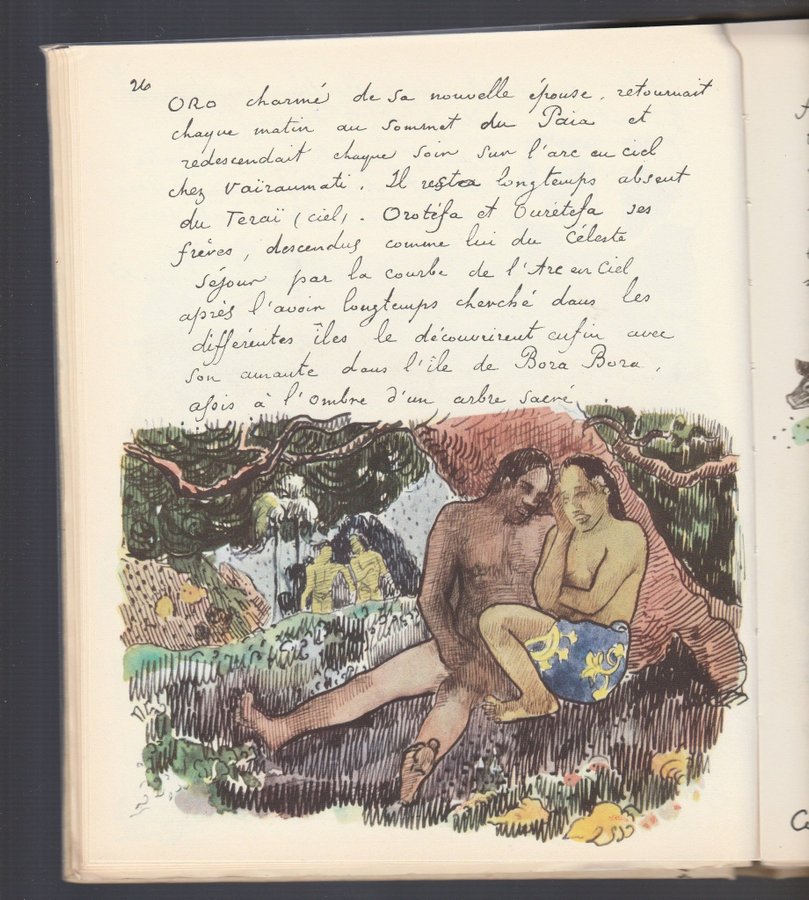 26
ORO charmé de sa nouvelle épouse. retournait
chaque matin au Sommet du Paia et
redescendait chaque soir sur l'arc en ciel
chez Vaïraumati. Il resta longtemps absent
du Teraï (ciel). Orotéfa et Ourétéfa ses
frères, descendus comme lui du Céleste
Séjour par la courbe de l'Arc en Ciel
après l'avoir longtemps cherché dans les
différentes îles le découvrirent enfin avec
son amante dans l'île de Bora Bora,
assis à l'ombre d'un arbre sacré.